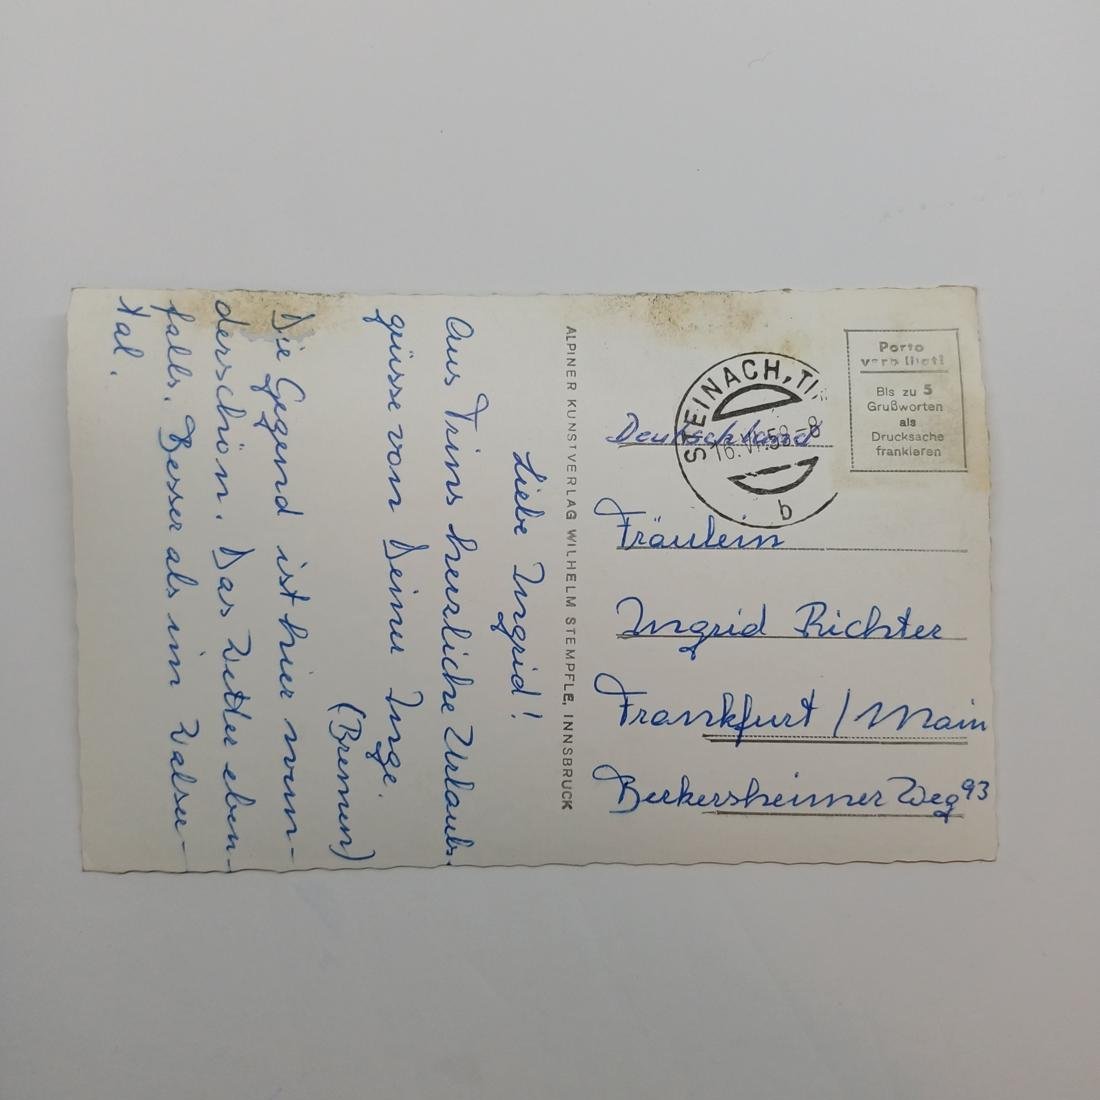 Liebe Ingrid!
Aus Trins herrliche Urlaubs-
grüsse von Deiner Inge.
(Bremen)
Die Gegend ist hier wun-
derschön. Das Wetter eben-
falls. Besser als im Walser-
tal.
ALPINER KUNSTVERLAG WILHELM STEMPFLE, INNSBRUCK
STEINACH, TI
16. VI. 58-8
b
Porto
verbilligt!
Bis zu 5
Grußworten
als
Drucksache
frankieren
Deutschland
Fräulein
Ingrid Richter
Frankfurt / Main
Berkersheimer Weg 93